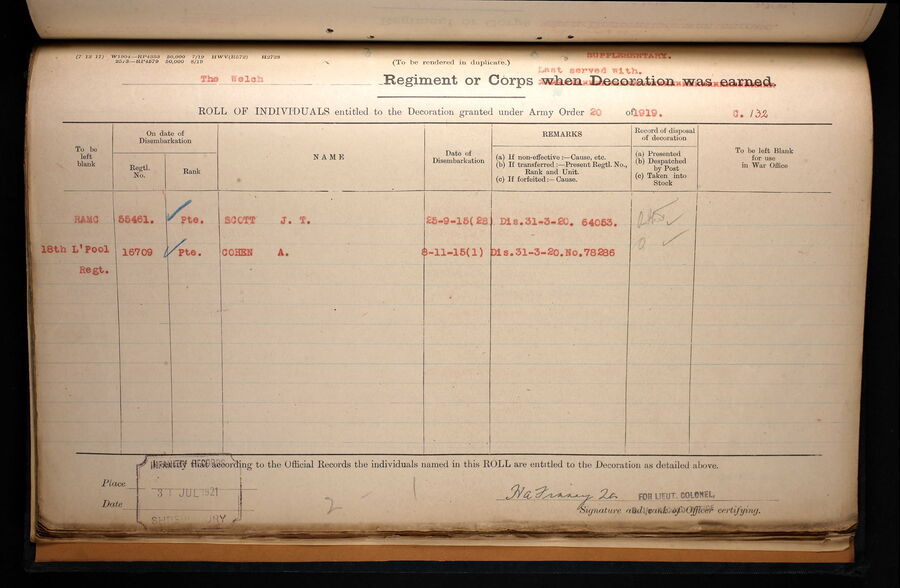 (7 12 17) W1904—RP4353 50,000 7/19 HWV(R572) H2729
2573—RP4579 50,000 8/19
(To be rendered in duplicate.)
SUPPLEMENTARY.
Last served with.
The Welch Regiment or Corps when Decoration was earned.
ROLL OF INDIVIDUALS entitled to the Decoration granted under Army Order 20 of 1919. C. 132
To be left blank
On date of Disembarkation
Regtl. No.
Rank
NAME
Date of Disembarkation
REMARKS
(a) If non-effective:—Cause, etc.
(b) If transferred:—Present Regtl. No., Rank and Unit.
(c) If forfeited:—Cause.
Record of disposal of decoration
(a) Presented
(b) Despatched by Post
(c) Taken into Stock
To be left Blank for use in War Office
RAMC 55461. Pte. SCOTT J. T. 25-9-15(2B) Dis.31-3-20. 64053.
18th L'Pool Regt. 16709 Pte. COHEN A. 8-11-15(1) Dis.31-3-20.No.78286
I certify that according to the Official Records the individuals named in this ROLL are entitled to the Decoration as detailed above.
INFANTRY RECORDS
Place
31 JUL 1921
Date
2 - 1
FOR LIEUT. COLONEL,
Signature and rank of Officer certifying.